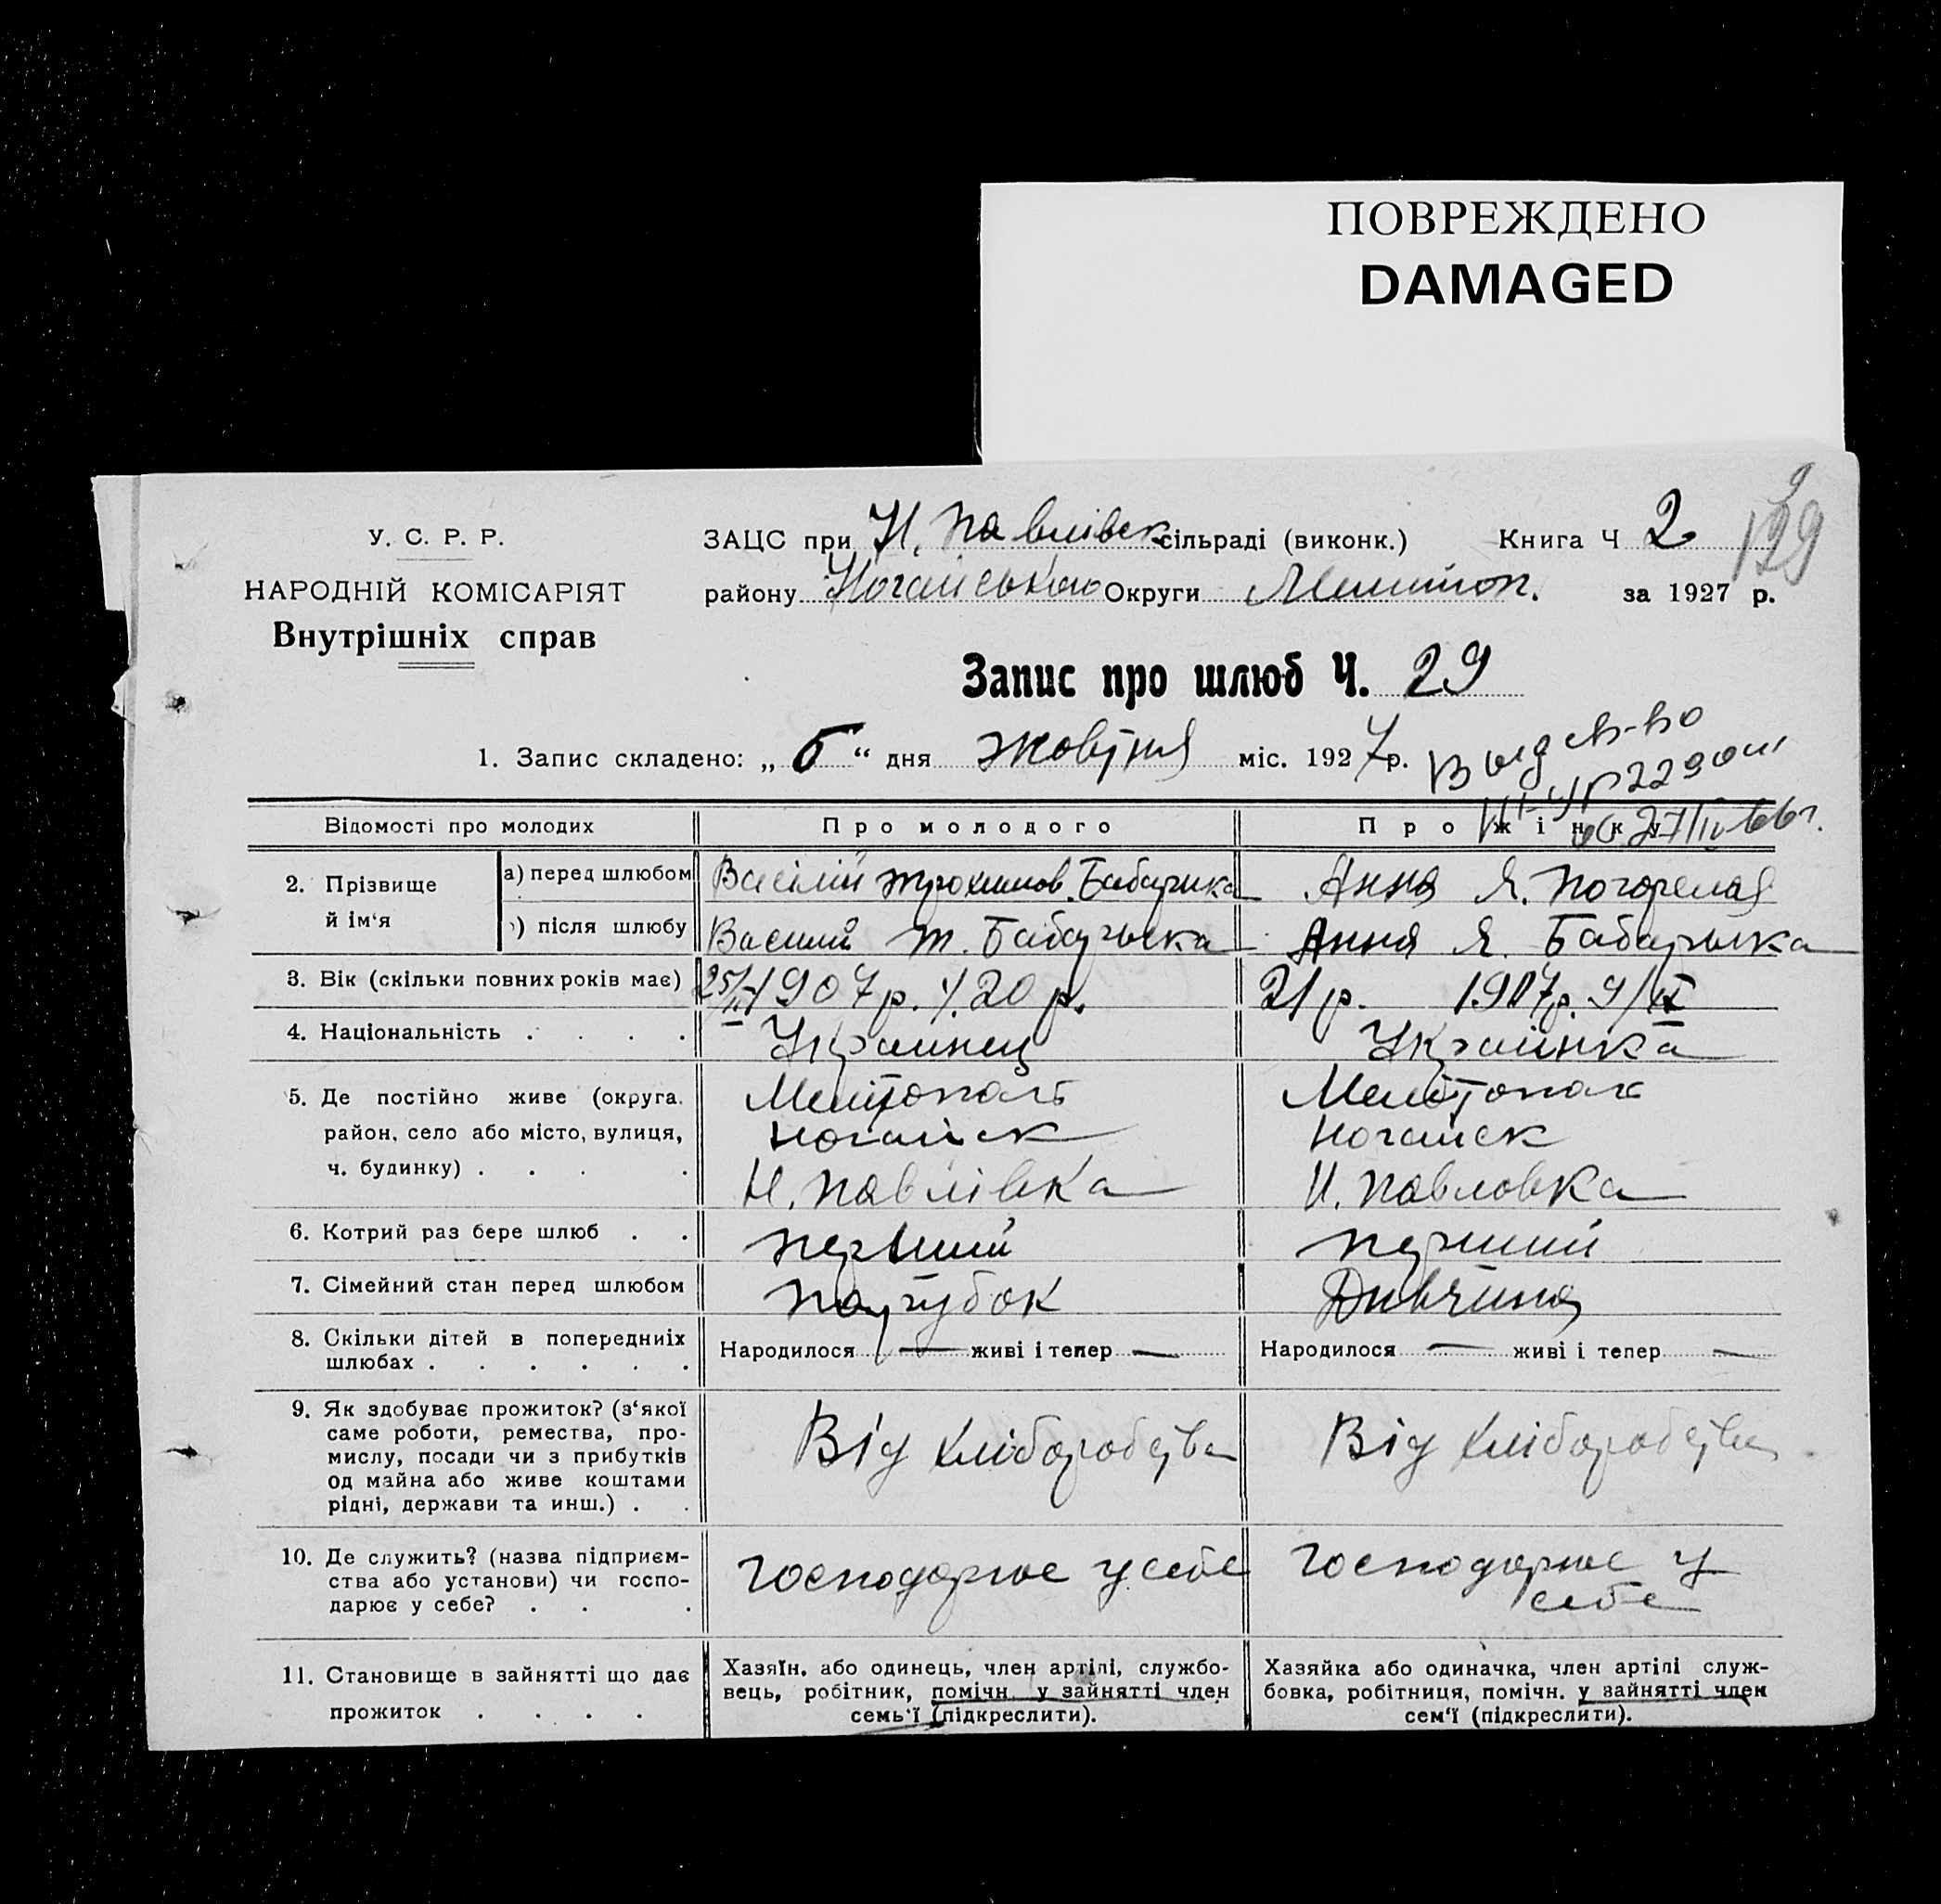 ПОВРЕЖДЕНО
DAMAGED
У. С. Р. Р.
НАРОДНІЙ КОМІСАРІЯТ
Внутрішніх справ
ЗАЦС при Н. Павлівск. сільраді (виконк.) Книга Ч 2
району Ногайського Округи Мелитоп. за 1927 р.
129
Запис про шлюб Ч. 29
1. Запис складено: „ 6 “ дня жовтня міс. 1927 р.
Выд св-во
27/IV 66 г.
Відомості про молодих Про молодого Про жінку
2. Прізвище й ім‘я а) перед шлюбом Васілий Трохимов. Бабарика Анна Я. Погорелая
) після шлюбу Василий Т. Бабарыка Анна Я. Бабарыка
3. Вік (скільки повних років має) 1907 р. 20 р. 21 р. 1907 р. 9/IX
4. Національність . . . . Украинец Украинка
5. Де постійно живе (округа. Мелітополь Мелітополь
район, село або місто, вулиця, Ногайск Ногайск
ч. будинку) . . . . Н. Павлівка Н. Павловка
6. Котрий раз бере шлюб . . перший перший
7. Сімейний стан перед шлюбом Парубок Дивчина
8. Скільки дітей в попередниіх Народилося — живі і тепер — Народилося — живі і тепер —
шлюбах . . . . . .
9. Як здобуває прожиток? (з‘якої
саме роботи, ремества, про-
мислу, посади чи з прибутків Від хліборобства Від хліборобства
од майна або живе коштами
рідні, держави та инш.) . .
10. Де служить? (назва підприєм- господарює у себе господарює у
ства або установи) чи госпо- себе
дарює у себе? . . .
11. Становище в зайнятті що дає Хазяїн, або одинець, член артілі, службо- Хазяйка або одиначка, член артілі служ-
прожиток . . . . вець, робітник, помічн. у зайнятті член бовка, робітниця, помічн. у зайнятті член
семь‘ї (підкреслити). сем‘ї (підкреслити).